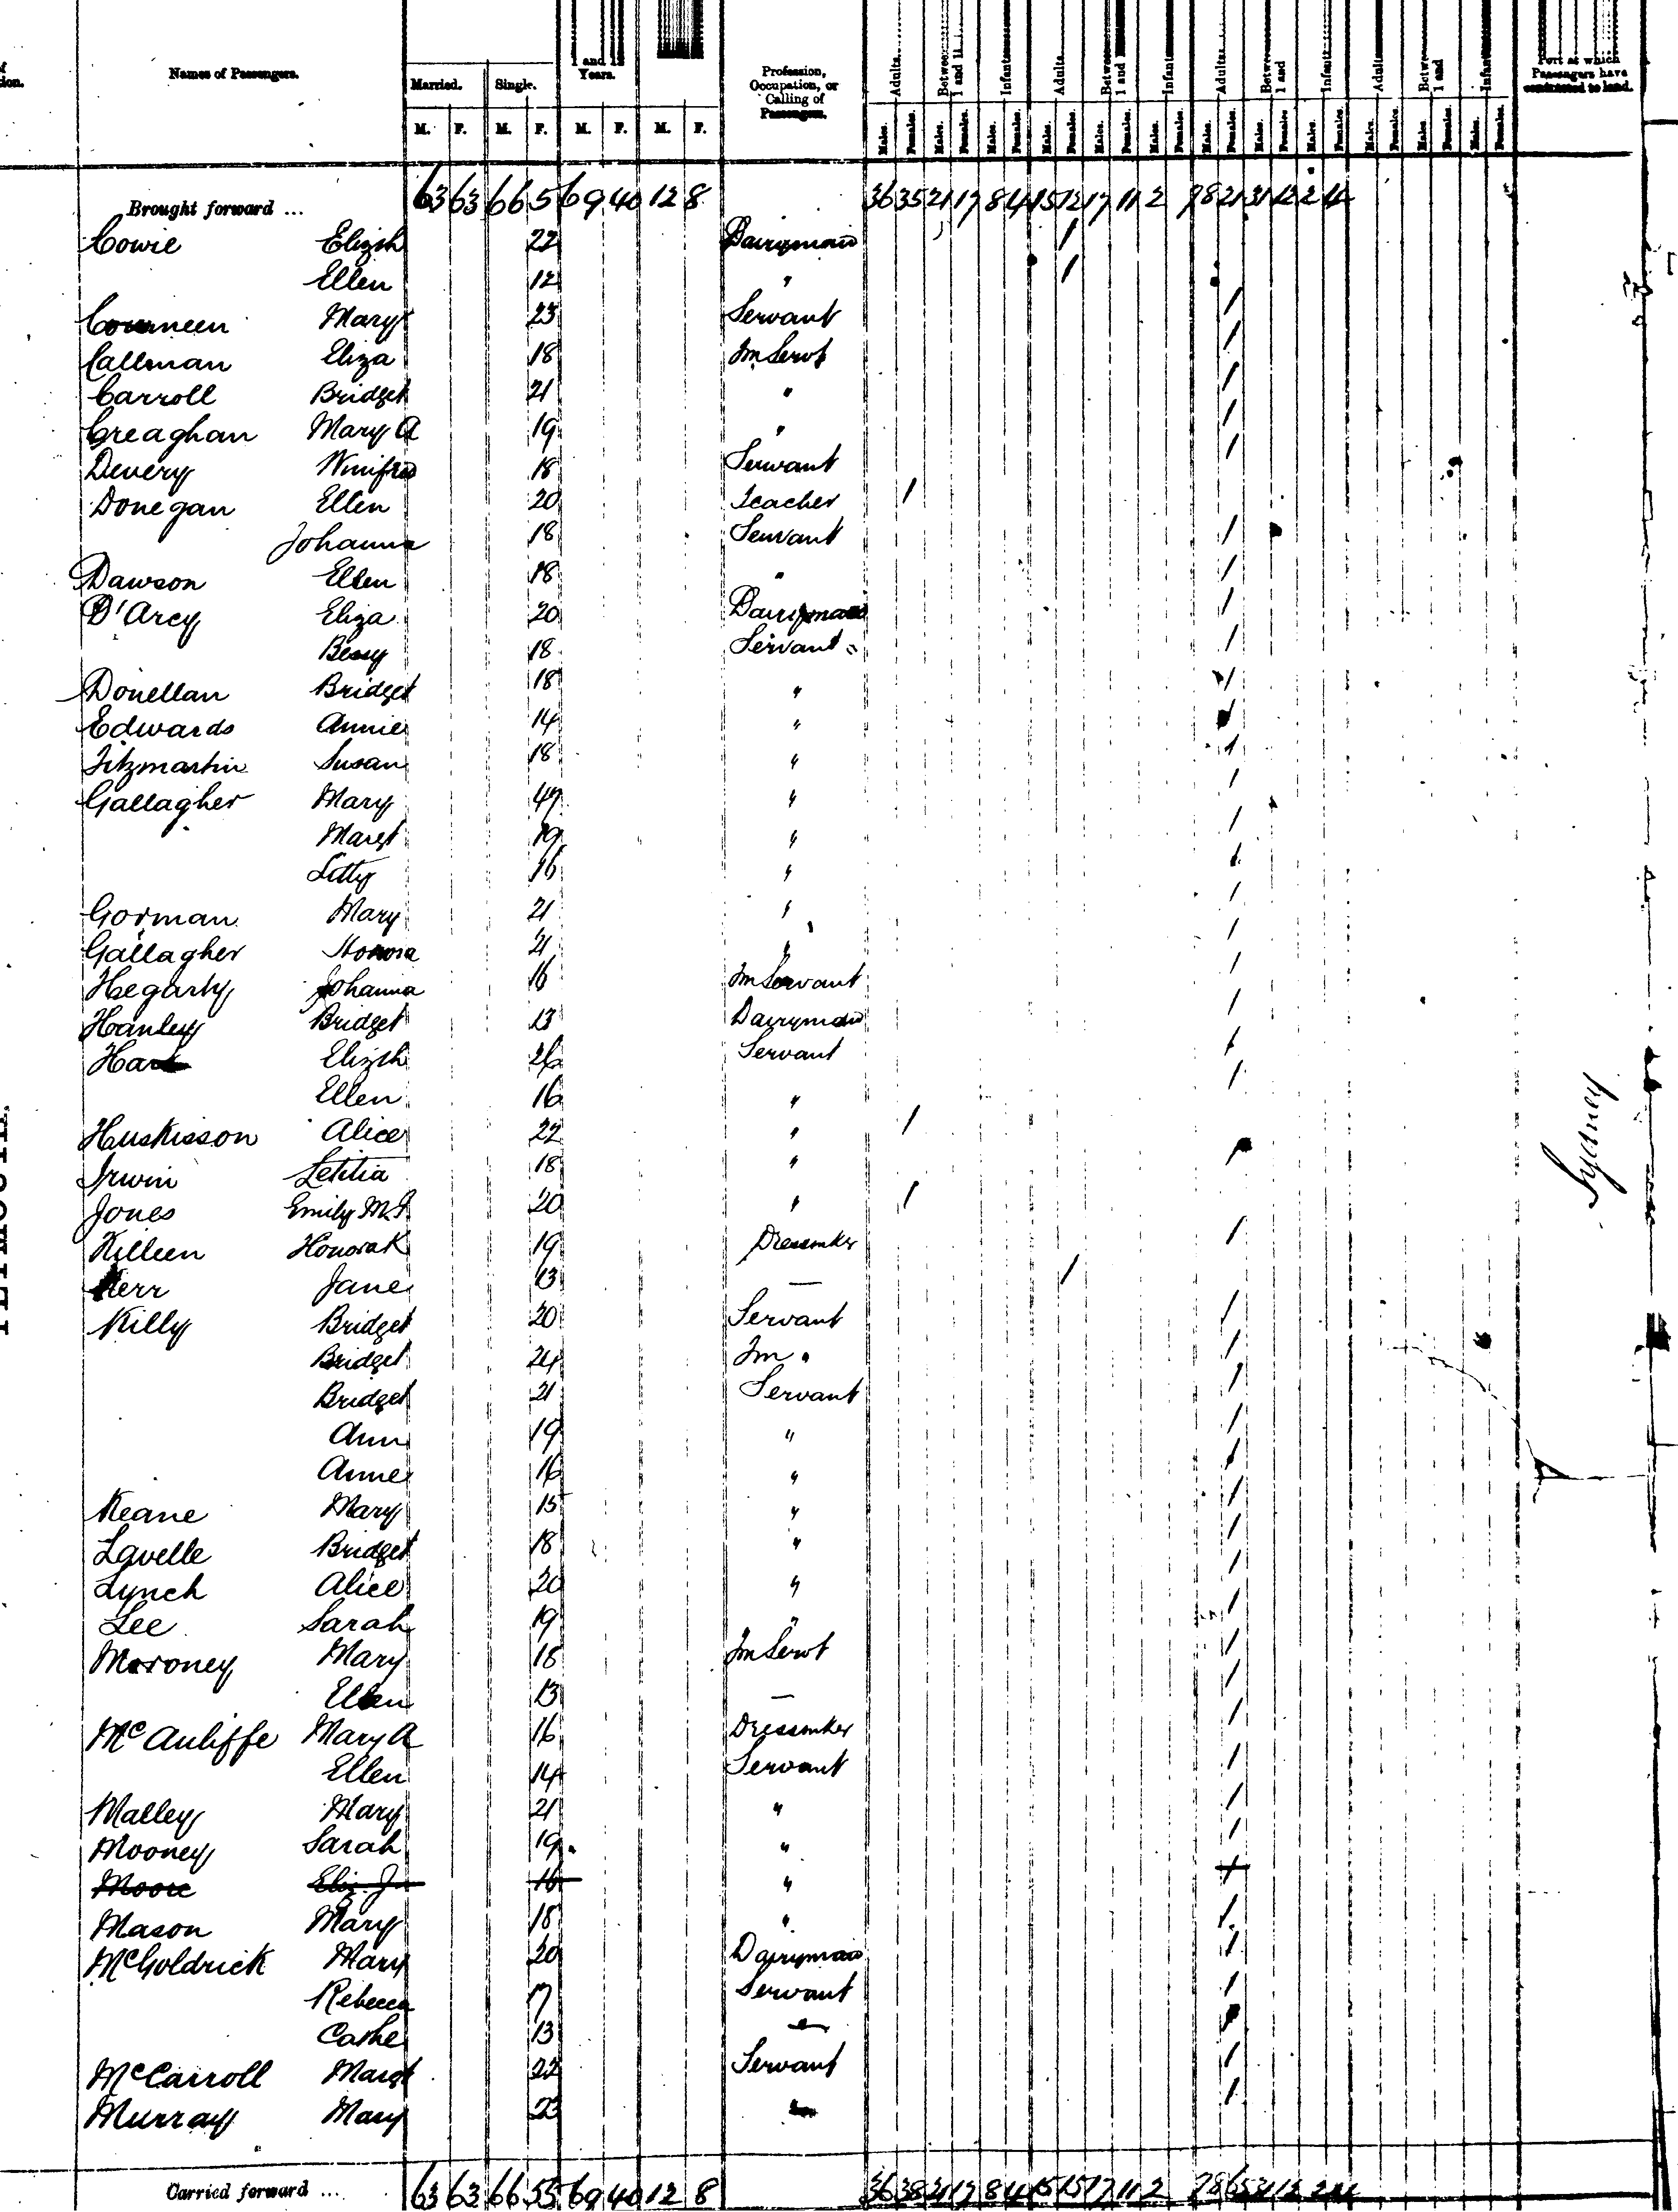 Names of Passengers.
Married. Single.
1 and Years.
Profession, Occupation, or Calling of Passengers.
Adults Between 1 and 11 Infants Adults Between 1 and Infants Adults Between 1 and Infants Adults Between 1 and Infants
Port at which Passengers have contracted to land.
M. F. M. F. M. F. M. F.
Males. Females. Males. Females. Males. Females. Males. Females. Males. Females. Males. Females. Males. Females. Males. Females Males. Females. Males. Females. Males. Females Males. Females.
Brought forward ... 63 63 66 5 69 40 12 8 36 35 21 17 8 4 15 12 17 11 2 28 21 31 12 2 4
Cowie Elizth 22 Dairymaid /
Ellen 12 " /
Mary 23 Servant /
Callman Eliza 18 Fm Servt /
Carroll Bridget 21 " /
Creaghan Mary A 19 " /
Devery Winifred 18 Servant /
Donegan Ellen 20 Teacher /
Johanna 18 Servant /
Dawson Ellen 18 " /
D'Arcy Eliza 20 Dairymaid /
Bessy 18 Servant /
Donellan Bridget 18 " /
Edwards Annie 14 " /
Fitzmartin Susan 18 " /
Gallagher Mary 47 " /
Margt 19 " /
Letty 16 " /
Gorman Mary 21 " /
Gallagher Honora 21 " /
Hegarty Johanna 16 Fm Servant /
Hanley Bridget 23 Dairymaid /
Elizth 26 Servant /
Ellen 16 " /
Huskisson Alice 22 " /
Irwin Letitia 18 " /
Jones Emily M. 20 " /
Killeen Honora K 19 Dressmker /
Kerr Jane 13 — /
Killy Bridget 20 Servant /
Bridget 24 Fm " /
Bridget 21 Servant /
Ann 19 " /
Anne 16 " /
Keane Mary 15 " /
Lavelle Bridget 18 " /
Lynch Alice 20 " /
Lee Sarah 19 " /
Moroney Mary 18 Fm Servt /
Ellen 13 — /
McAuliffe Mary A 16 Dressmker /
Ellen 14 Servant /
Malley Mary 21 " /
Mooney Sarah 19 " /
Moore Eliz. J 16 " /
Mason Mary 18 " /
McGoldrick Mary 20 Dairymaid /
Rebecca 17 Servant /
Cathe 13 — /
McCarroll Margt 22 Servant /
Murray Mary 23 /
Sydney
Carried forward ... 63 63 66 55 69 40 12 8 36 38 21 17 8 4 15 15 17 11 2 28 65 31 12 2 4